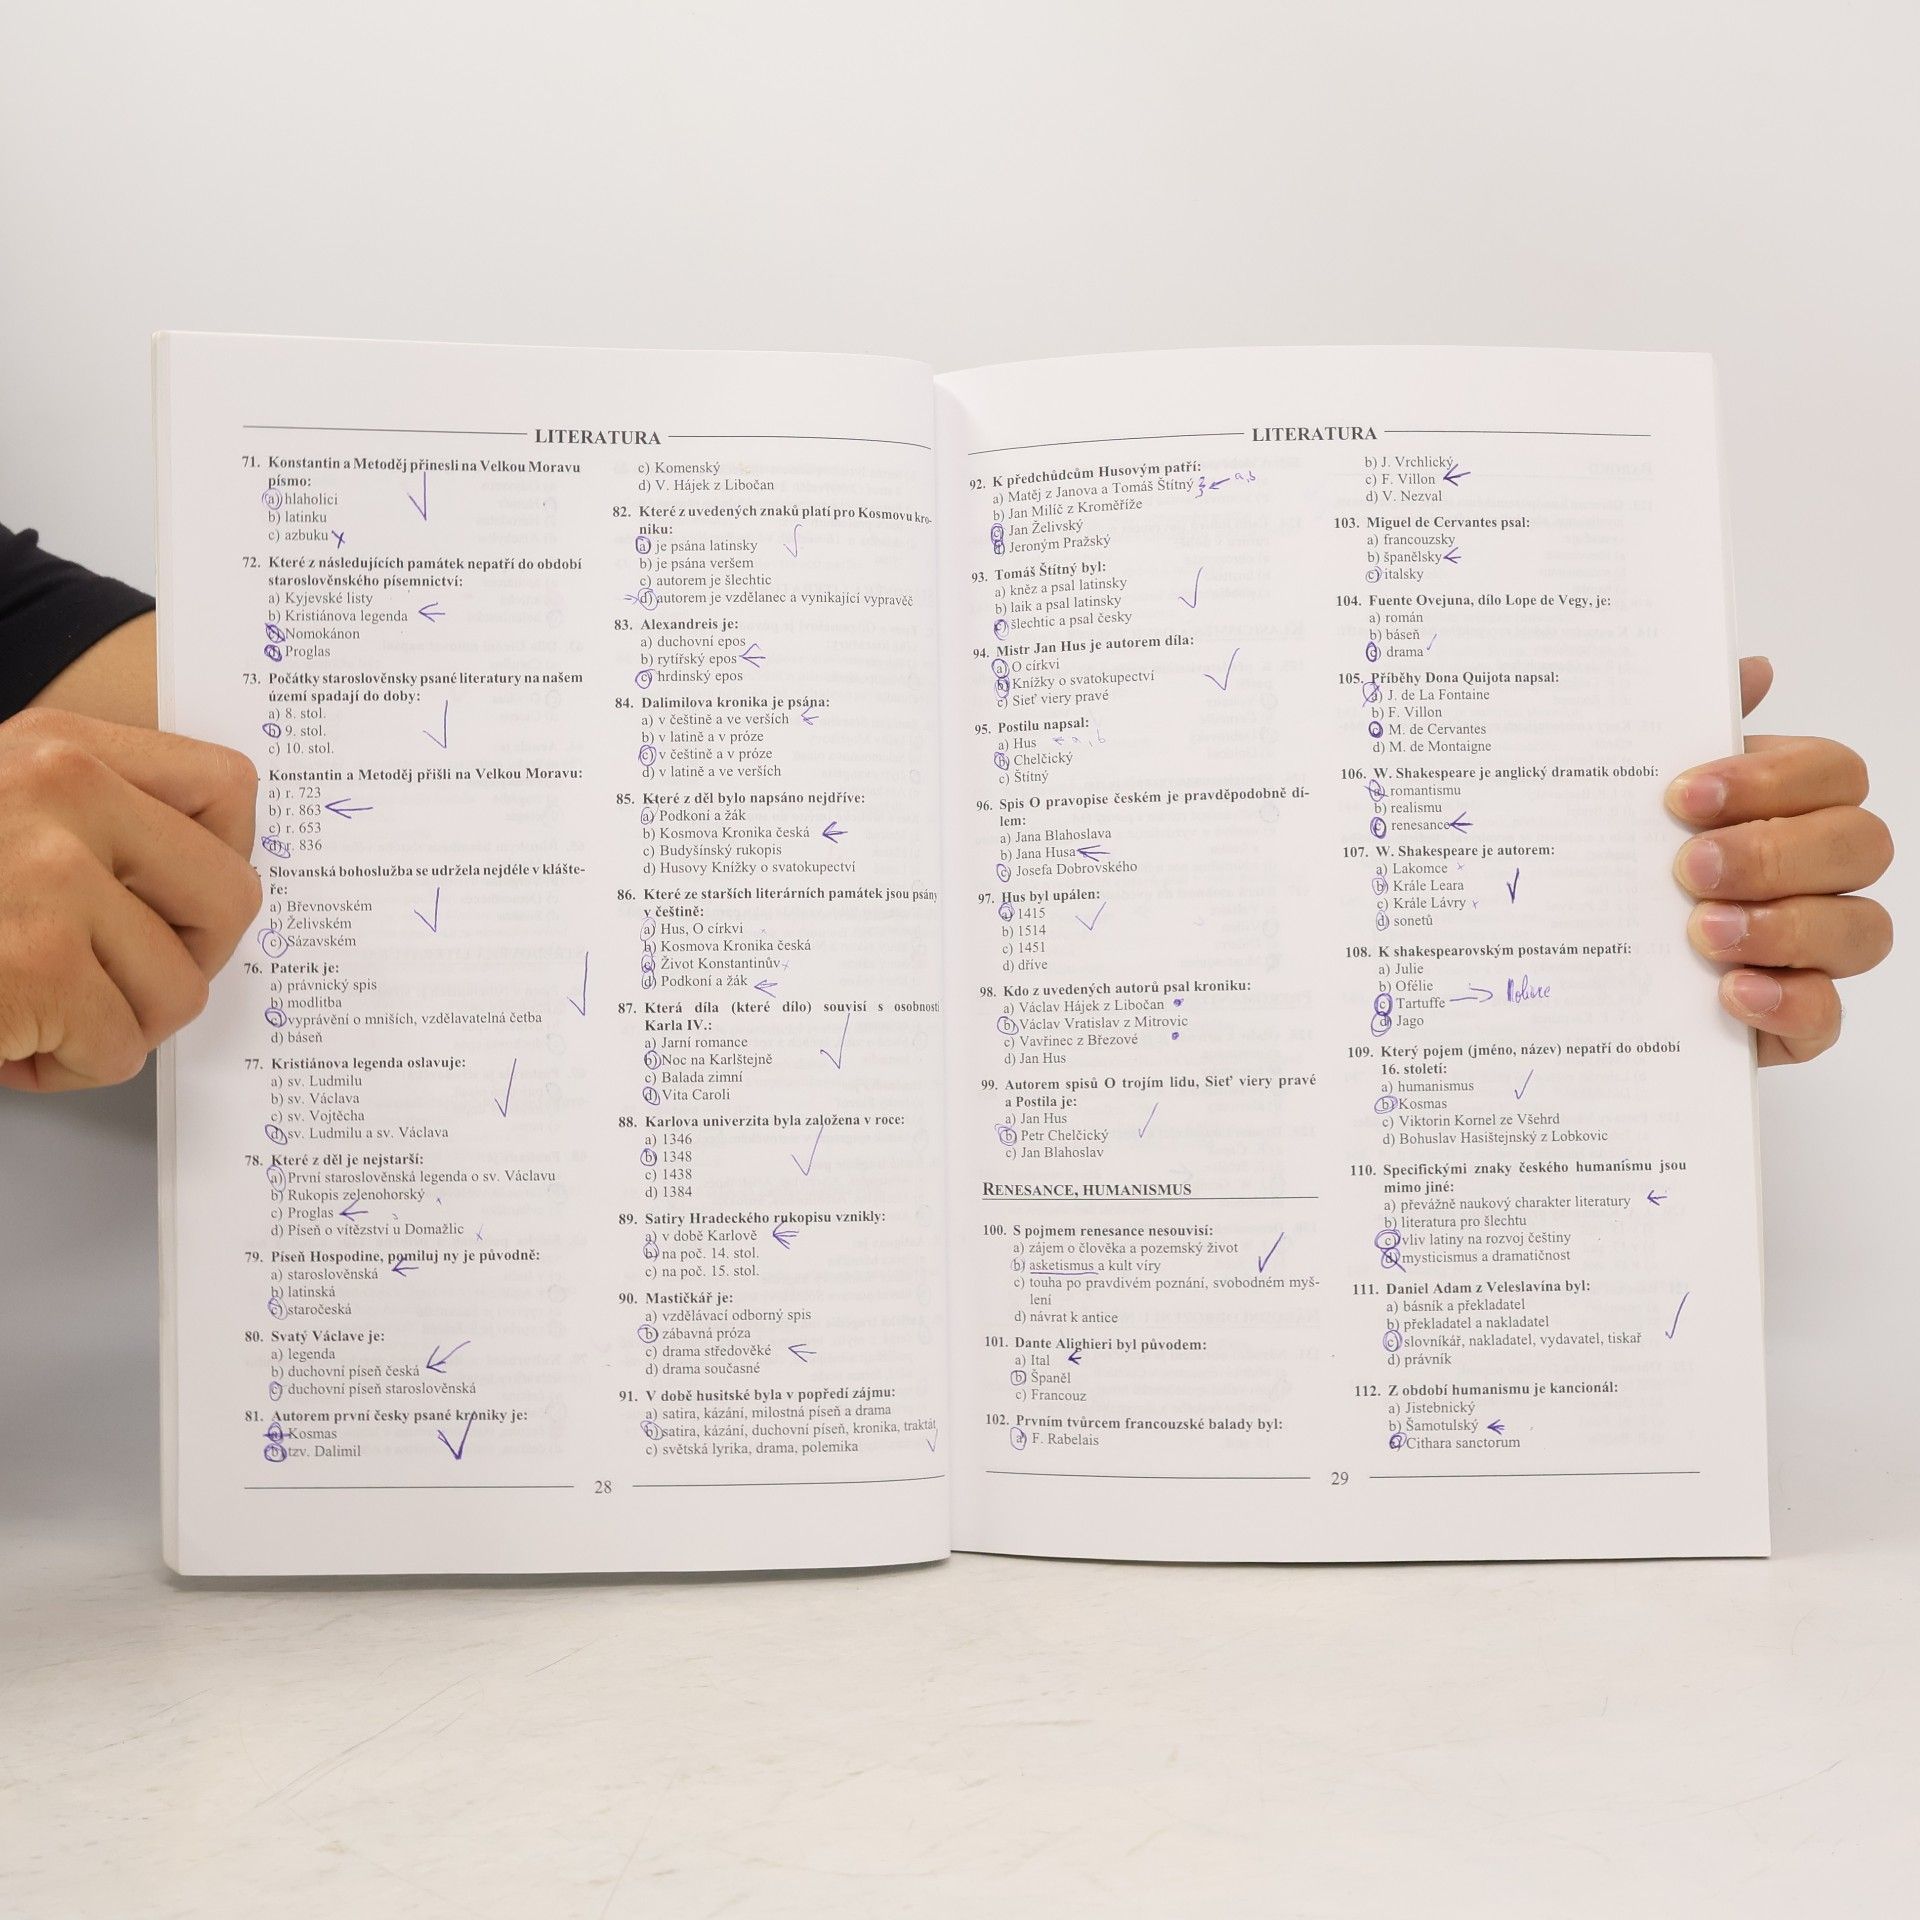 LITERATURA
71. Konstantin a Metoděj přinesli na Velkou Moravu
písmo:
a) hlaholici
b) latinku
c) azbuku
72. Které z následujících památek nepatří do období
staroslověnského písemnictví:
a) Kyjevské listy
b) Kristiánova legenda
c) Nomokánon
d) Proglas
73. Počátky staroslověnsky psané literatury na našem
území spadají do doby:
a) 8. stol.
b) 9. stol.
c) 10. stol.
Konstantin a Metoděj přišli na Velkou Moravu:
a) r. 723
b) r. 863
c) r. 653
d) r. 836
Slovanská bohoslužba se udržela nejdéle v klášte-
ře:
a) Břevnovském
b) Želivském
c) Sázavském
76. Paterik je:
a) právnický spis
b) modlitba
c) vyprávění o mniších, vzdělavatelná četba
d) báseň
77. Kristiánova legenda oslavuje:
a) sv. Ludmilu
b) sv. Václava
c) sv. Vojtěcha
d) sv. Ludmilu a sv. Václava
78. Které z děl je nejstarší:
a) První staroslověnská legenda o sv. Václavu
b) Rukopis zelenohorský
c) Proglas
d) Píseň o vítězství u Domažlic
79. Píseň Hospodine, pomiluj ny je původně:
a) staroslověnská
b) latinská
c) staročeská
80. Svatý Václave je:
a) legenda
b) duchovní píseň česká
c) duchovní píseň staroslověnská
81. Autorem první česky psané kroniky je:
a) Kosmas
b) tzv. Dalimil
c) Komenský
d) V. Hájek z Libočan
82. Které z uvedených znaků platí pro Kosmovu kro-
niku:
a) je psána latinsky
b) je psána veršem
c) autorem je šlechtic
d) autorem je vzdělanec a vynikající vypravěč
83. Alexandreis je:
a) duchovní epos
b) rytířský epos
c) hrdinský epos
84. Dalimilova kronika je psána:
a) v češtině a ve verších
b) v latině a v próze
c) v češtině a v próze
d) v latině a ve verších
85. Které z děl bylo napsáno nejdříve:
a) Podkoní a žák
b) Kosmova Kronika česká
c) Budyšínský rukopis
d) Husovy Knížky o svatokupectví
86. Které ze starších literárních památek jsou psány
v češtině:
a) Hus, O církvi
b) Kosmova Kronika česká
c) Život Konstantinův
d) Podkoní a žák
87. Která díla (které dílo) souvisí s osobností
Karla IV.:
a) Jarní romance
b) Noc na Karlštejně
c) Balada zimní
d) Vita Caroli
88. Karlova univerzita byla založena v roce:
a) 1346
b) 1348
c) 1438
d) 1384
89. Satiry Hradeckého rukopisu vznikly:
a) v době Karlově
b) na poč. 14. stol.
c) na poč. 15. stol.
90. Mastičkář je:
a) vzdělávací odborný spis
b) zábavná próza
c) drama středověké
d) drama současné
91. V době husitské byla v popředí zájmu:
a) satira, kázání, milostná píseň a drama
b) satira, kázání, duchovní píseň, kronika, traktát
c) světská lyrika, drama, polemika
28
LITERATURA
92. K předchůdcům Husovým patří:
a) Matěj z Janova a Tomáš Štítný a,b
b) Jan Milíč z Kroměříže
c) Jan Želivský
d) Jeroným Pražský
93. Tomáš Štítný byl:
a) kněz a psal latinsky
b) laik a psal latinsky
c) šlechtic a psal česky
94. Mistr Jan Hus je autorem díla:
a) O církvi
b) Knížky o svatokupectví
c) Sieť viery pravé
95. Postilu napsal:
a) Hus a, b
b) Chelčický
c) Štítný
96. Spis O pravopise českém je pravděpodobně dí-
lem:
a) Jana Blahoslava
b) Jana Husa
c) Josefa Dobrovského
97. Hus byl upálen:
a) 1415
b) 1514
c) 1451
d) dříve
98. Kdo z uvedených autorů psal kroniku:
a) Václav Hájek z Libočan
b) Václav Vratislav z Mitrovic
c) Vavřinec z Březové
d) Jan Hus
99. Autorem spisů O trojím lidu, Sieť viery pravé
a Postila je:
a) Jan Hus
b) Petr Chelčický
c) Jan Blahoslav
RENESANCE, HUMANISMUS
100. S pojmem renesance nesouvisí:
a) zájem o člověka a pozemský život
b) asketismus a kult víry
c) touha po pravdivém poznání, svobodném myš-
lení
d) návrat k antice
101. Dante Alighieri byl původem:
a) Ital
b) Španěl
c) Francouz
102. Prvním tvůrcem francouzské balady byl:
a) F. Rabelais
b) J. Vrchlický
c) F. Villon
d) V. Nezval
103. Miguel de Cervantes psal:
a) francouzsky
b) španělsky
c) italsky
104. Fuente Ovejuna, dílo Lope de Vegy, je:
a) román
b) báseň
c) drama
105. Příběhy Dona Quijota napsal:
a) J. de La Fontaine
b) F. Villon
c) M. de Cervantes
d) M. de Montaigne
106. W. Shakespeare je anglický dramatik období:
a) romantismu
b) realismu
c) renesance
107. W. Shakespeare je autorem:
a) Lakomce
b) Krále Leara
c) Krále Lávry
d) sonetů
108. K shakespearovským postavám nepatří:
a) Julie
b) Ofélie
c) Tartuffe
d) Jago
109. Který pojem (jméno, název) nepatří do období
16. století:
a) humanismus
b) Kosmas
c) Viktorin Kornel ze Všehrd
d) Bohuslav Hasištejnský z Lobkovic
110. Specifickými znaky českého humanismu jsou
mimo jiné:
a) převážně naukový charakter literatury
b) literatura pro šlechtu
c) vliv latiny na rozvoj češtiny
d) mysticismus a dramatičnost
111. Daniel Adam z Veleslavína byl:
a) básník a překladatel
b) překladatel a nakladatel
c) slovníkář, nakladatel, vydavatel, tiskař
d) právník
112. Z období humanismu je kancionál:
a) Jistebnický
b) Šamotulský
c) Cithara sanctorum
29